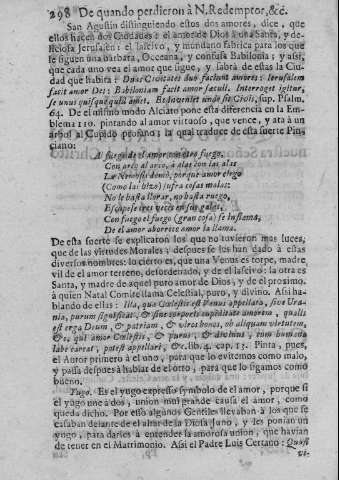 298 De quando perdieron à N. Redemptor, &c.
San Agustin distinguiendo estos dos amores, dice, que
ellos hacen dos Ciudades: el amor de Dios à una Santa, y de-
liciosa Jerusalen: el lascivo, y mundano fabrica para los que
le siguen una barbara, y confusa Babilonia; y assi,
que cada uno vea el amor que sigue, y sabrà de essas la Ciu-
dad que habita: Duas Civitates duo faciunt amores: Ierusalem
facit amor Dei: Babiloniam facit amor sæculi. Interroget igitur,
se unusquisque quid amet. Et inveniet unde sit Civis, sup. Psalm.
64. De el mismo modo Alciato pone esta diferencia en la Em-
blema 110. pintando al amor virtuoso, que vence, y ata à un
arbol al Cupido profano; la qual traduce de esta suerte Pin-
ciano:
Al fuego de el amor con otro fuego,
Con arco al arco, à alas con las alas
La Nemesis domò, porque amor ciego
(Como las hizo) sufra cosas malas:
No le basta llorar, no basta ruego,
Escupese tres veces en sus galas,
Con fuego el fuego (gran cosa) se inflama,
De el amor aborrece amor la llama.
De esta suerte se explicaron los que no tuvieron mas luces,
que de las virtudes Morales; despues se les han dado à estas
diversos nombres: lo cierto es, que una Venus es torpe, madre
vil de el amor terreno, desordenado, y de el lascivo: la otra es
Santa, y madre de aquel puro amor de Dios, y de el proximo.
à quien Natal Comite llama Celestial, puro, y divino. Assi ha-
blando de ellas: Illa, quæ Cœlestis est Venus appellata, sive Ura-
nia, purum significat, & sine corporis cupiditate amorem, qualis
est erga Deum, & patriam, & viros bonos, ob aliquam virtutem,
&c. qui amor Cœlestis, & purus, & divinus, cum humida
labe careat, potest appellari, &c. lib. 4. cap. 13. Pinta, pues,
el Autor primero à el uno, para que lo evitemos como malo,
y passa despues à hablar de el otro, para que lo sigamos como
bueno.
Yugo. Es el yugo expresso symbolo de el amor, porque si
el yugo une à dos, union mui grande causa el amor, como
queda dicho. Por esso algunos Gentiles llevaban à los que se
casaban delante de el altar de la Diosa Juno, y les ponian un
yugo, para darles à entender la amorosa union, que havian
de tener en el Matrimonio. Assi el Padre Luis Cerdano: Quòd